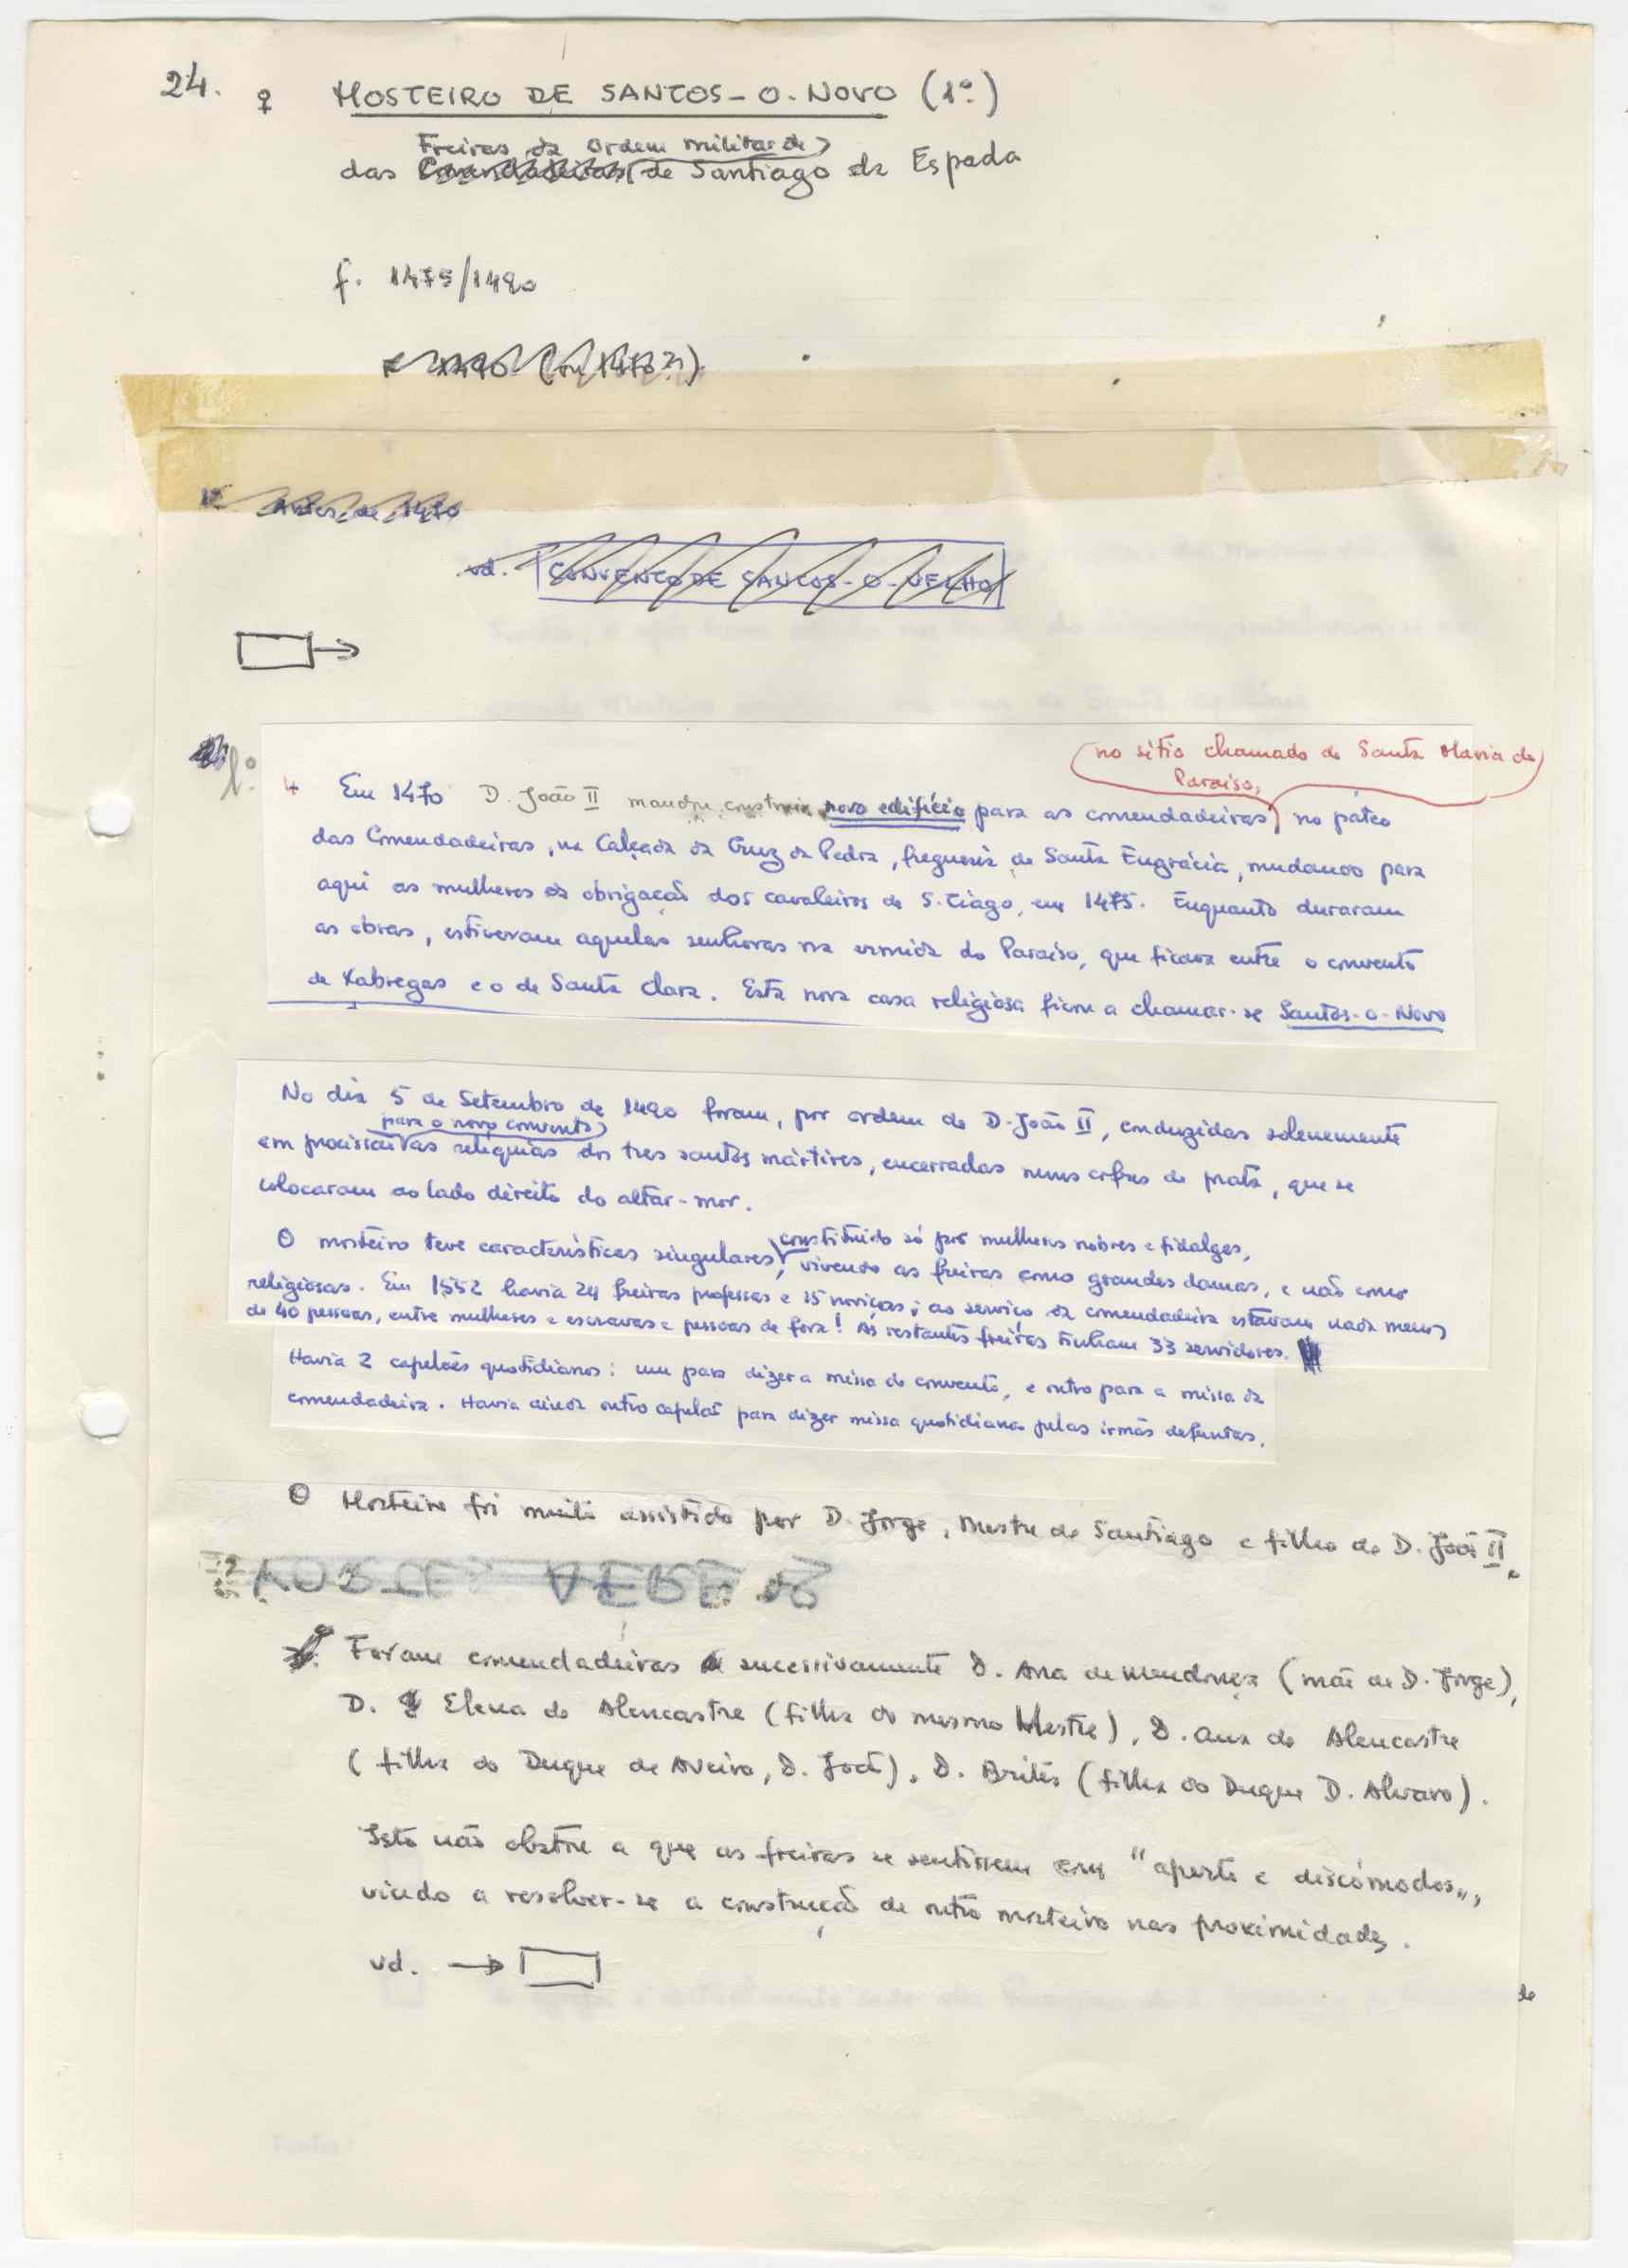 24. ♀ MOSTEIRO DE SANTOS-O-NOVO (1º)
Freiras da Ordem militar de
das Comendadeiras de Santiago da Espada
f. 1475/1490
Antes de 1470
vd. CONVENTO DE SANTOS-O-VELHO
(no sítio chamado de Santa Maria do
Paraiso,
1º. 4 Em 1470 D. João II mandou construir novo edifício para as comendadeiras, no páteo
das Comendadeiras, na Calçada da Cruz da Pedra, freguesia de Santa Engrácia, mudando para
aqui as mulheres da obrigação dos cavaleiros de S. Tiago, em 1475. Enquanto duraram
as obras, estiveram aquelas senhoras na ermida do Paraiso, que ficava entre o convento
de Xabregas e o de Santa Clara. Esta nova casa religiosa ficou a chamar-se Santos-o-Novo
No dia 5 de Setembro de 1490 foram, por ordem de D. João II, conduzidas solenemente
para o novo convento
em procissão as relíquias dos tres santos mártires, encerradas nuns cofres de prata, que se
colocaram ao lado direito do altar-mor.
constituido só por mulheres nobres e fidalgas,
O mosteiro teve características singulares, vivendo as freiras como grandes damas, e não como
religiosas. Em 1552 havia 24 freiras professas e 15 noviças; ao serviço da comendadeira estavam nada menos
de 40 pessoas, entre mulheres e escravas e pessoas de fora! As restantes freiras tinham 33 servidores.
Havia 2 capelães quotidianos: um para dizer a missa do convento, e outro para a missa da
comendadeira. Havia ainda outro capelão para dizer missa quotidiana pelas irmãs defuntas.
O Mosteiro foi muito assistido por D. Jorge, Mestre de Santiago e filho de D. João II.
Foram comendadeiras sucessivamente D. Ana de Mendonça (mãe de D. Jorge),
D. Elena de Alencastre (filha do mesmo Mestre), D. Ana de Alencastre
(filha do Duque de Aveiro, D. João), D. Brites (filha do Duque D. Alvaro).
Isto não obstou a que as freiras se sentissem com "aperto e discómodos",
vindo a resolver-se a construção de outro mosteiro nas proximidades.
vd. →
de